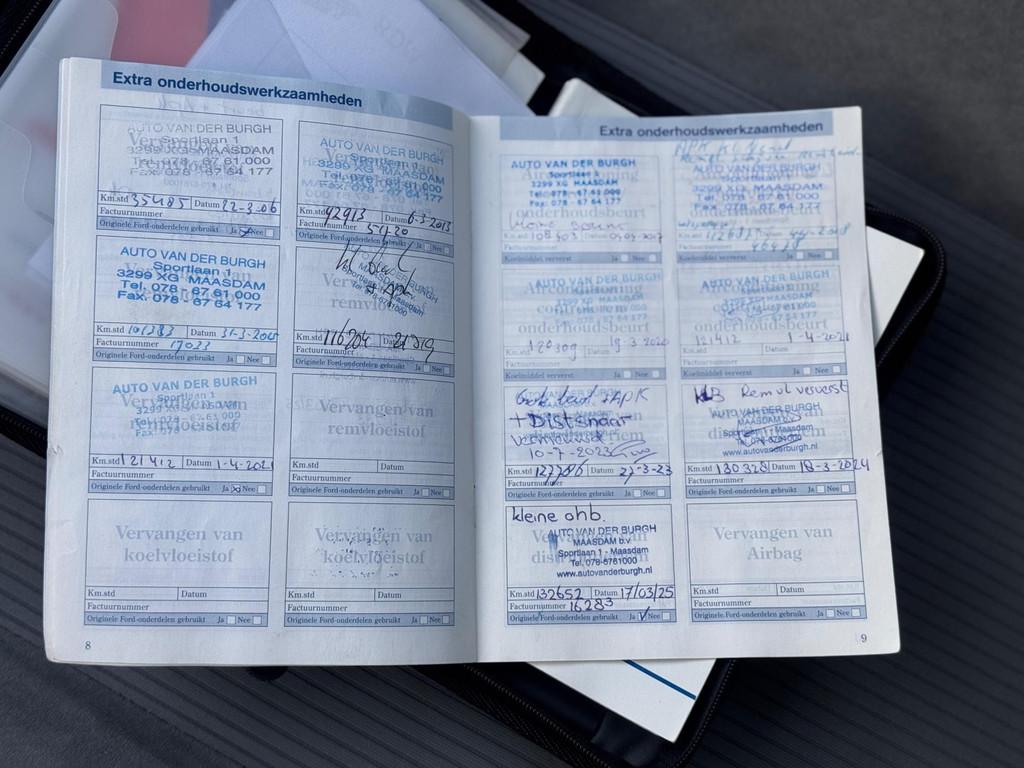 Extra onderhoudswerkzaamheden
AUTO VAN DER BURGH
Sportlaan 1
3299 XG MAASDAM
Tel. 078 - 67 61 000
Fax. 078 - 67 64 177
Km.std 35485 Datum 22-3-06
Factuurnummer
Originele Ford-onderdelen gebruikt Ja Nee
AUTO VAN DER BURGH
Sportlaan 1
3299 XG MAASDAM
Tel. 078 - 67 61 000
Fax. 078 - 67 64 177
Km.std 101383 Datum 31-3-2015
Factuurnummer 17033
Originele Ford-onderdelen gebruikt Ja Nee
AUTO VAN DER BURGH
Sportlaan 1
Km.std 121412 Datum 1-4-2021
Factuurnummer
Originele Ford-onderdelen gebruikt Ja Nee
Vervangen van
koelvloeistof
Km.std Datum
Factuurnummer
Originele Ford-onderdelen gebruikt Ja Nee
8
AUTO VAN DER BURGH
Sportlaan 1
3299 XG MAASDAM
Tel. 078 - 67 61 000
Fax. 078 - 67 64 177
Km.std 92913 Datum 6-3-2013
Factuurnummer 5420
Originele Ford-onderdelen gebruikt Ja Nee
Vervangen van
remvloeistof
Km.std 116204 Datum
Factuurnummer
Originele Ford-onderdelen gebruikt Ja Nee
Vervangen van
remvloeistof
Km.std Datum
Factuurnummer
Originele Ford-onderdelen gebruikt Ja Nee
Vervangen van
koelvloeistof
Km.std Datum
Factuurnummer
Originele Ford-onderdelen gebruikt Ja Nee
Extra onderhoudswerkzaamheden
AUTO VAN DER BURGH
Sportlaan 1
3299 XG MAASDAM
Tel: 078 - 67 61 000
Fax: 078 - 67 64 177
onderhoudsbeurt
kleine beurt
Km.std 108503
Factuurnummer
Koelmiddel ververst Ja Nee
AUTO VAN DER BURGH
onderhoudsbeurt
Km.std 120309 19-3-2020
Factuurnummer
Koelmiddel ververst Ja Nee
Grote beurt + APK
+ Distsnaar
vernieuwd
10-7-2023
Km.std 127786 Datum 27-3-23
Factuurnummer
Originele Ford-onderdelen gebruikt Ja Nee
kleine ohb.
AUTO VAN DER BURGH
MAASDAM b.v.
Sportlaan 1 - Maasdam
Tel. 078-6761000
www.autovanderburgh.nl
Km.std 132652 Datum 17/03/25
Factuurnummer 16283
Originele Ford-onderdelen gebruikt Ja Nee
AUTO VAN DER BURGH
Sportlaan 1
3299 XG MAASDAM
Tel. 078 - 67 61 000
Fax. 078 - 67 64 177
Koelmiddel ververst Ja Nee
AUTO VAN DER BURGH
onderhoudsbeurt
121412 1-4-2021
Factuurnummer
Koelmiddel ververst Ja Nee
KB Remvl ververst
AUTO VAN DER BURGH
MAASDAM b.v.
Sportlaan 1 - Maasdam
Tel. 078-6761000
www.autovanderburgh.nl
Km.std 130328 Datum 18-3-2024
Factuurnummer
Originele Ford-onderdelen gebruikt Ja Nee
Vervangen van
Airbag
Km.std Datum
Factuurnummer
Originele Ford-onderdelen gebruikt Ja Nee
9